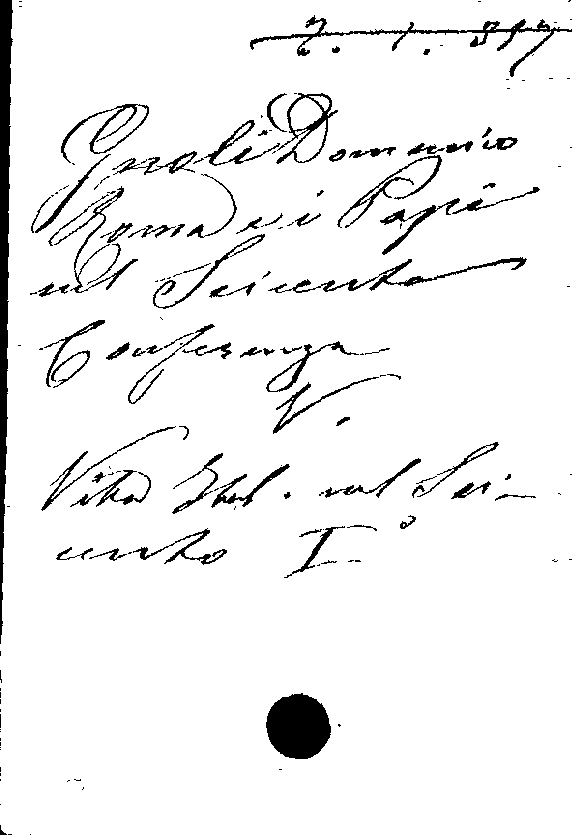 7. 1. 317
Gnoli Domenico
Roma e i Papi
nel Seicento
Conferenza
V.
Vita Ital. nel Sei-
cento I°